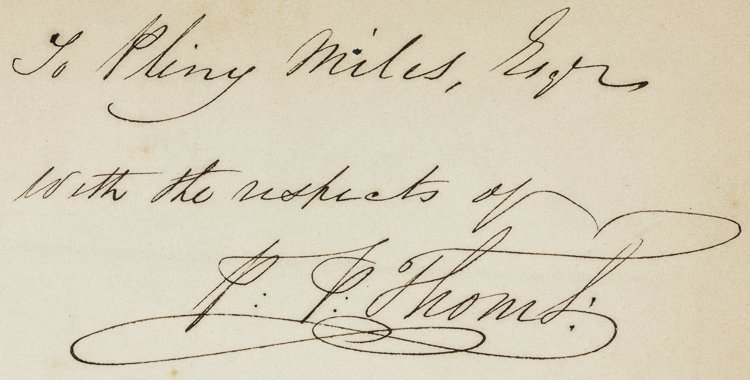 To Pliny Miles, Esqr
with the respects of
P. P. Thoms.